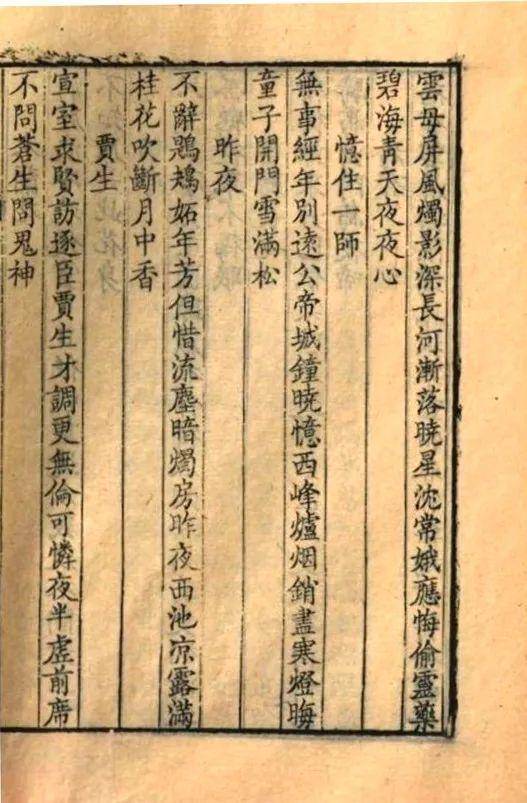 雲母屏風燭影深長河漸落曉星沈常娥應悔偷靈藥
碧海青天夜夜心
憶住一師
無事經年別遠公帝城鐘曉憶西峰爐烟銷盡寒燈晦
童子開門雪滿松
昨夜
不辭鶗鴂妬年芳但惜流塵暗燭房昨夜西池凉露滿
桂花吹斷月中香
賈生
宣室求賢訪逐臣賈生才調更無倫可憐夜半虛前席
不問蒼生問鬼神